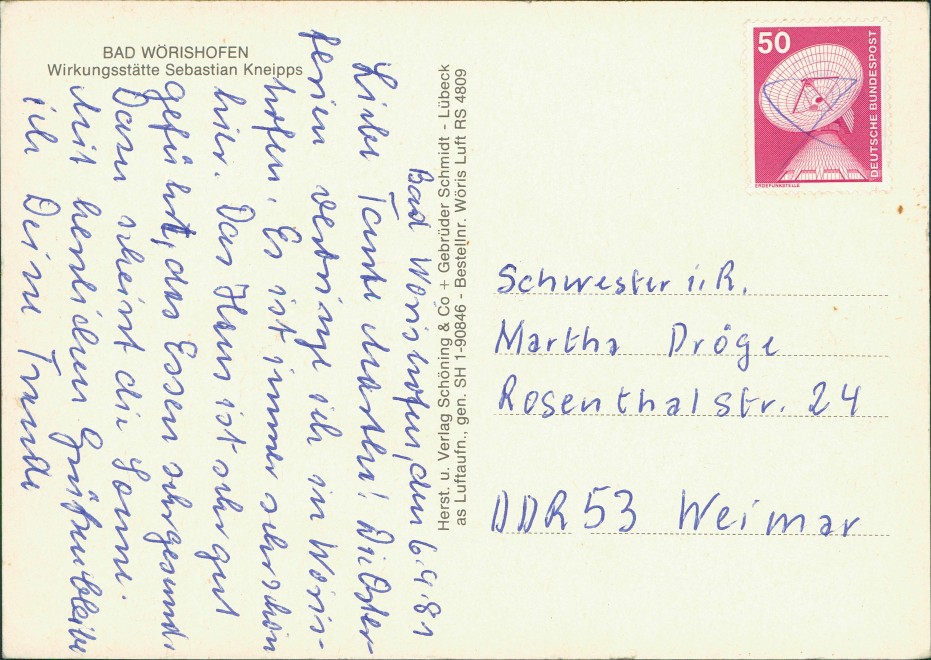 BAD WÖRISHOFEN
Wirkungsstätte Sebastian Kneipps
Bad Wörishofen, den 6.4.81
Liebe Tante Martha! Die Oster-
ferien verbringe ich in Wöris-
hofen. Es ist immer sehr schön
hier. Das Haus ist sehr gut
geführt, das Essen sehr gesund.
Dazu scheint die Sonne.
Mit herzlichen Grüßen bleibe
ich Deine Traude
Herst. u. Verlag Schöning & Co + Gebrüder Schmidt - Lübeck
as Luftaufn., gen. SH 1-90846 - Bestellnr. Wöris Luft RS 4809
50
DEUTSCHE BUNDESPOST
ERDEFUNKSTELLE
Schwester i. R.
Martha Dröge
Rosenthalstr. 24
DDR 53 Weimar